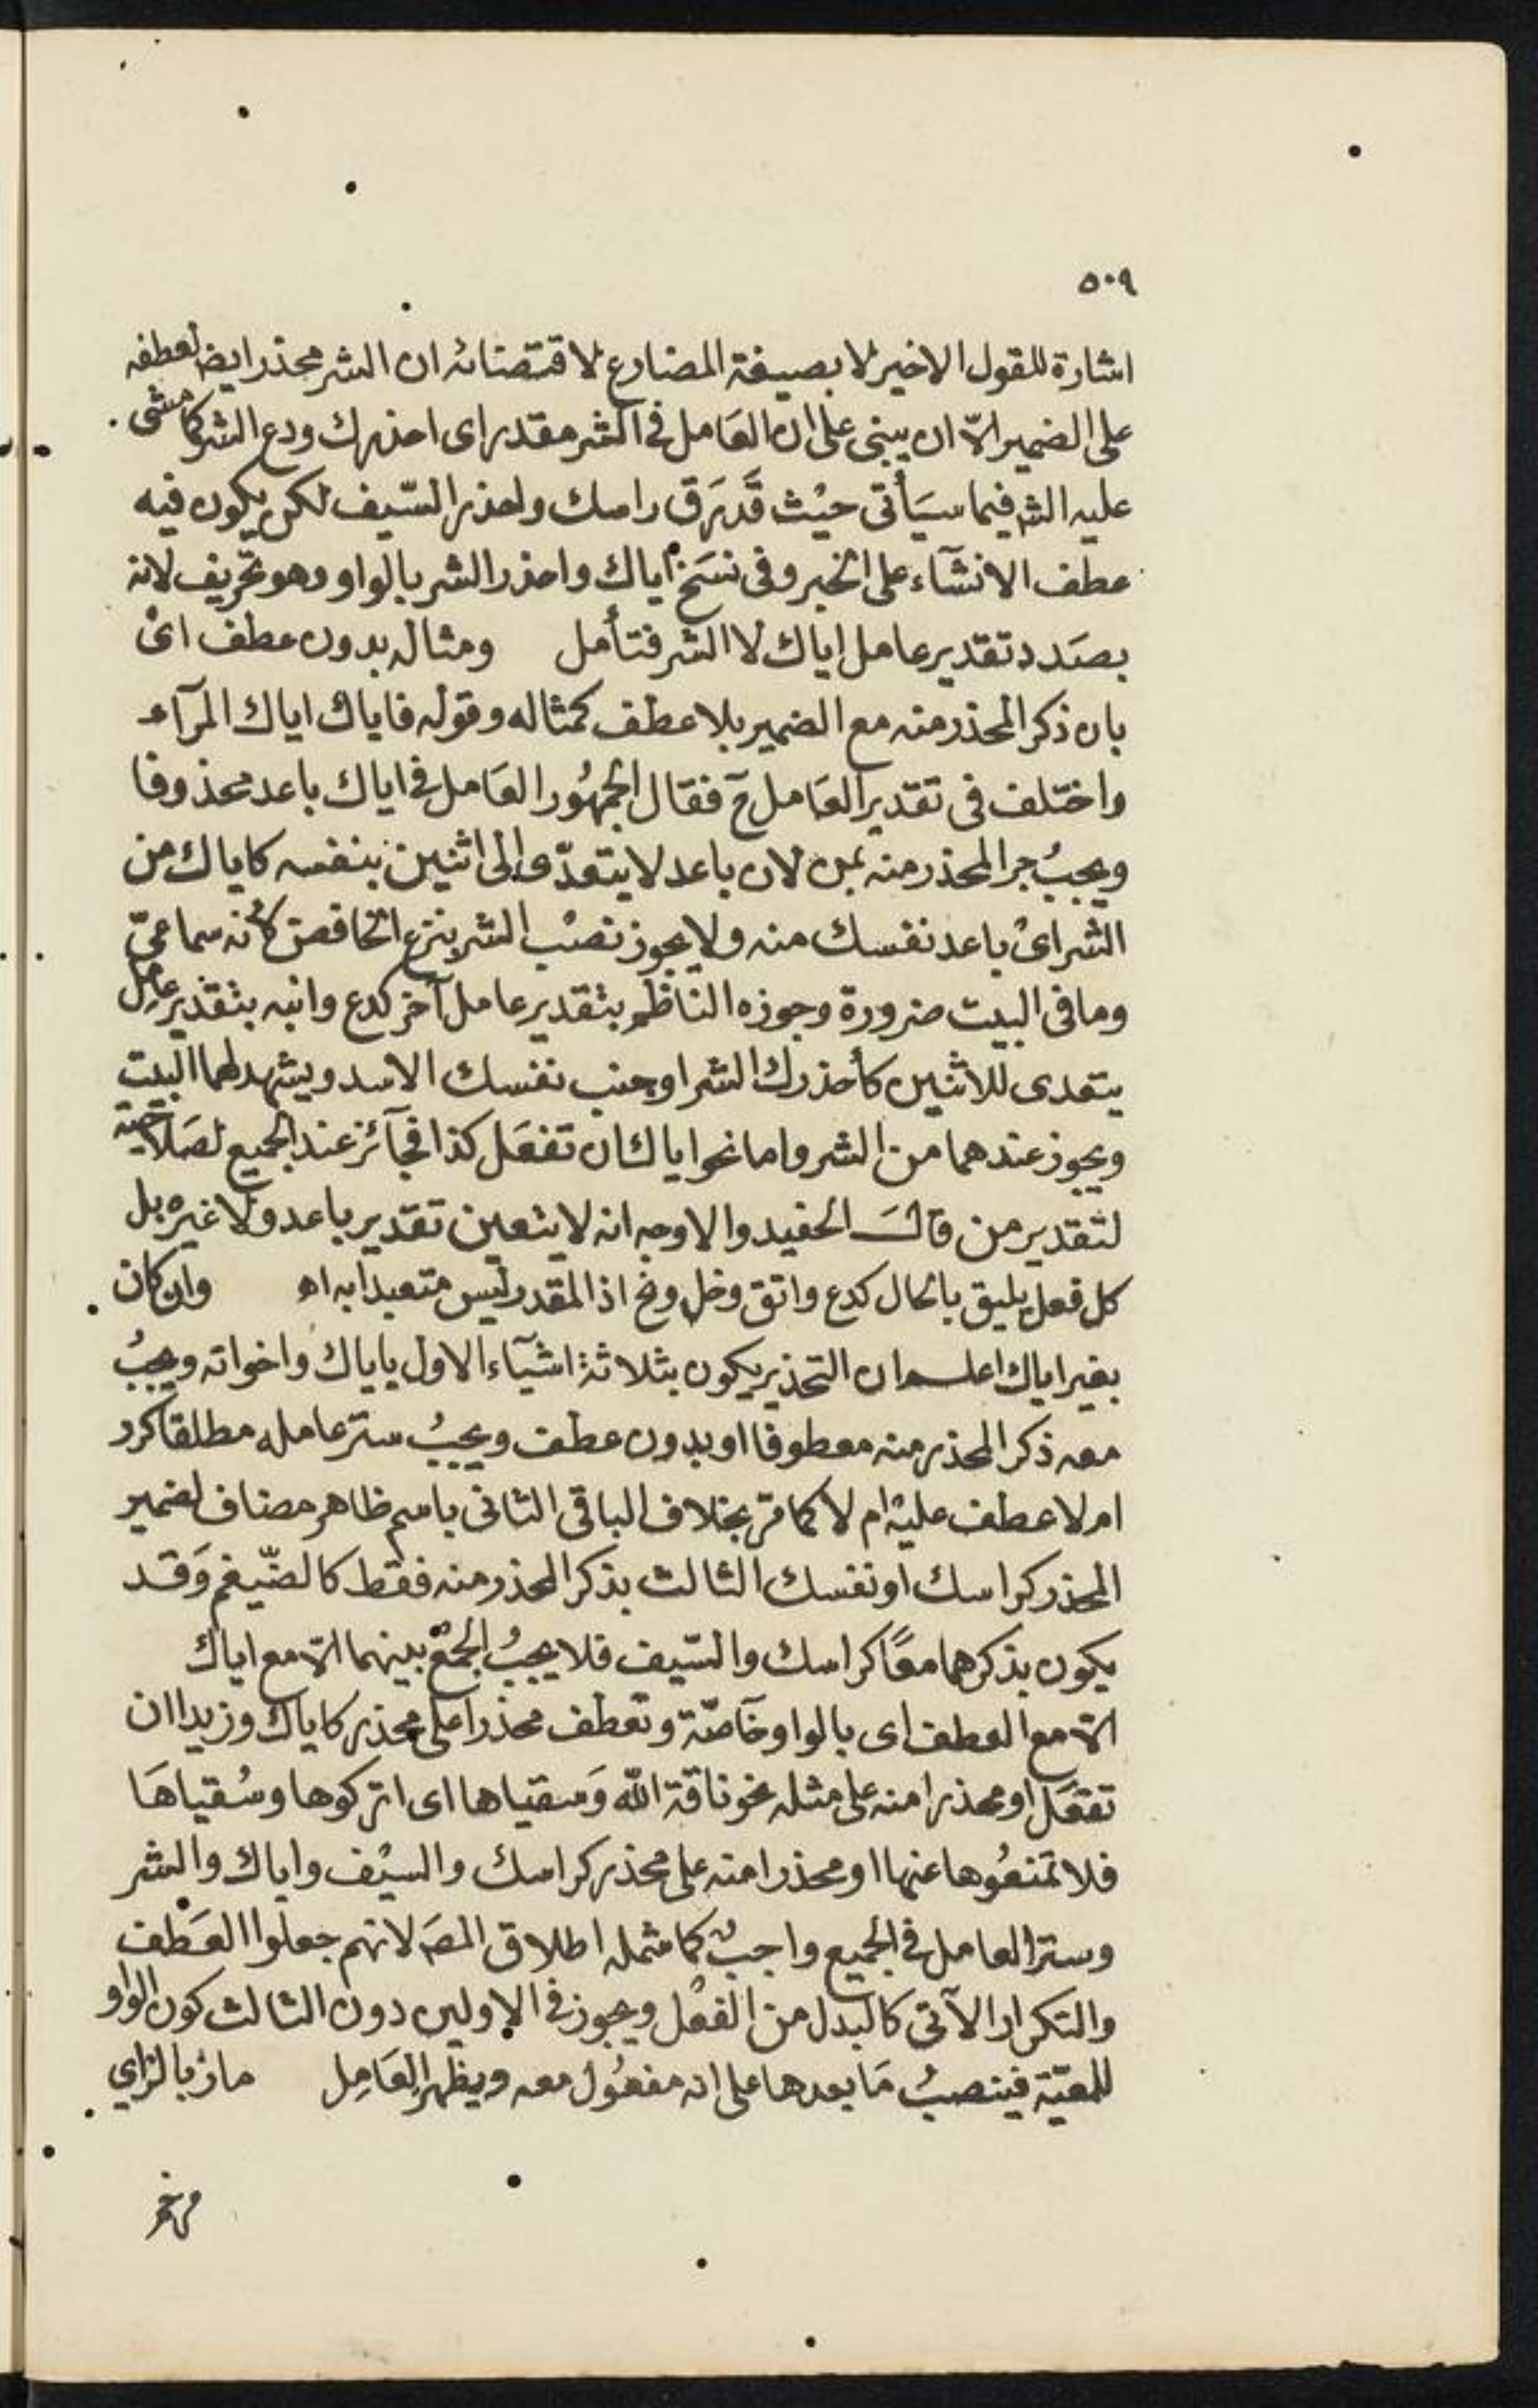 ٥٠٩
اشارة للقول الاخير لا بصيغة المضارع لاقتضائه ان الشر محذر ايض لعطفه
على الضمير الّا ان يبنى على ان العَامل في الشر مقدر اى احذرك ودع الشر كما مشى
عليه الشر فيما سيَأتى حيْث قَدّر قِ راسك واحذر السّيف لكن يكون فيه
عطف الانشآء على الخبر وفى نسَخ اياك واحذر الشر بالواو وهو تحريف لانه
بصَدد تقدير عامل اياك لا الشر فتأمل ومثاله بدون عطف اىْ
بان ذكر المحذر منه مع الضمير بلا عطف كمثاله وقوله فاياك اياك المرآء
واختلف فى تقدير العَامل ح فقال الجمهُور العَامل في اياك باعد محذوفا
ويجبُ جر المحذر منه بمن لان باعد لا يتعدّى الى اثنين بنفسه كاياك من
الشر اىْ باعد نفسك منه ولا يجوز نصْب الشر بنزع الخافض لانه سماعىّ
وما فى البيت ضرورة وجوزه الناظم بتقدير عامل آخر كدع وابنه بتقدير عامل
يتعدى للاثنين كأحذرك الشر او جنب نفسك الاسد ويشهد لهما البيت
ويجوز عندهما من الشر واما نحو اياك ان تفعَل كذا فجآئز عند الجميع لصَلاحيته
لتقدير من قالَ الحفيد والاوجه انه لا يتعين تقدير باعد ولا غيره بل
كل فعل يليق بالحال كدع واتق وخل ونح اذ المقدر ليس متعبدا به اه وان كان
بغير اياك اعلم ان التحذير يكون بثلاثة اشيآء الاول باياك واخواته ويجبُ
معه ذكر المحذر منه معطوفا او بدون عطف ويجبُ ستر عامله مطلقا كرر
ام لا عطف عليْه ام لا كما مرّ بخلاف الباقى الثانى باسم ظاهر مضاف لضمير
المحذر كراسك او نفسك الثالث بذكر المحذر منه فقط كالضّيغم وَقد
يكون بذكرهما معًا كراسك والسّيف فلا يجبُ الجمْع بينهما الّا مع اياك
الّا مع العطف اى بالواو خآصّة وتعطف محذرا على محذر كاياك وزيدا ان
تفعَل او محذرا منه على مثله نحو ناقة الله وَسقياها اى اتركوها وسُقياهَا
فلا تمنعُوها عنها او محذرا منه على محذر كراسك والسيْف واياك والشر
وستر العامل في الجميع واجبٌ كما شمله اطلاق المصَ لانهم جعلوا العَطف
والتكرار الآتى كالبدل من الفعْل ويجوز في الاولين دون الثالث كون الواو
للمعيّة فينصبُ مَا بعدها على انه مفعُول معه ويظهر العَامِل ماز بالزاي